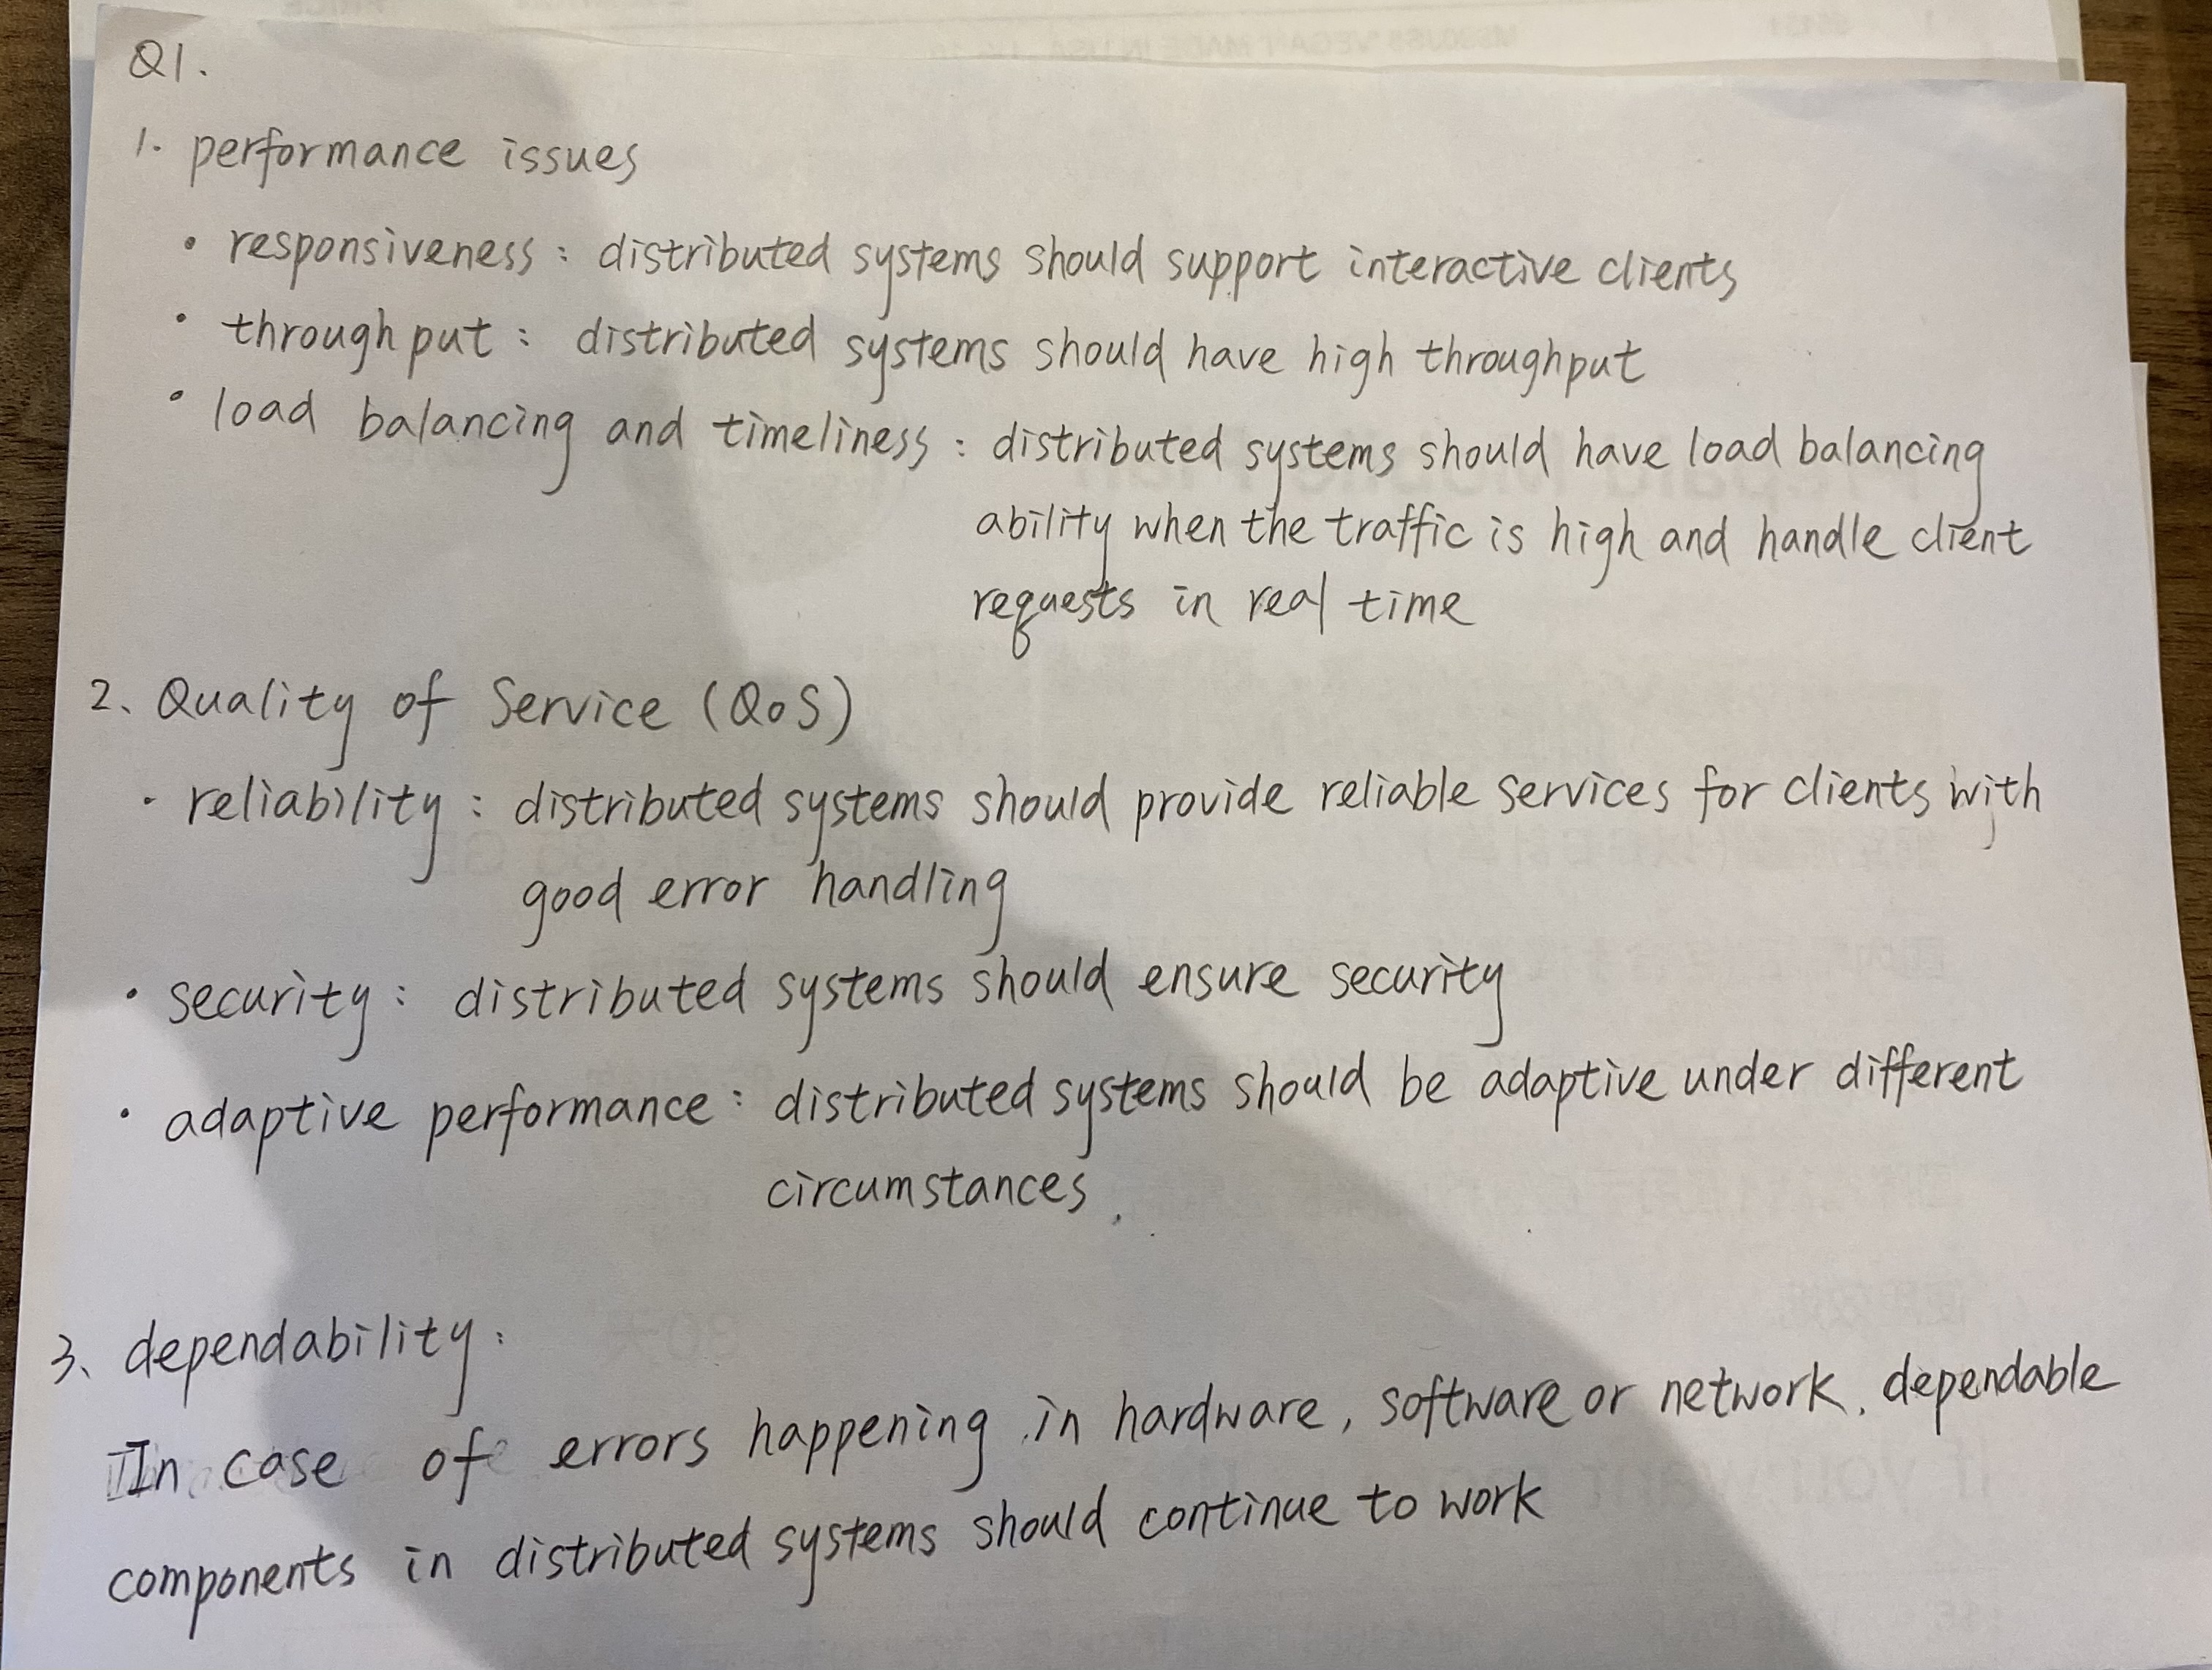 Q1.
1. performance issues
• responsiveness : distributed systems should support interactive clients
• throughput : distributed systems should have high throughput
• load balancing and timeliness : distributed systems should have load balancing
ability when the traffic is high and handle client
requests in real time
2、Quality of Service (QoS)
• reliability : distributed systems should provide reliable services for clients with
good error handling
• security : distributed systems should ensure security
• adaptive performance : distributed systems should be adaptive under different
circumstances.
3、dependability :
In case of errors happening in hardware, software or network. dependable
components in distributed systems should continue to work